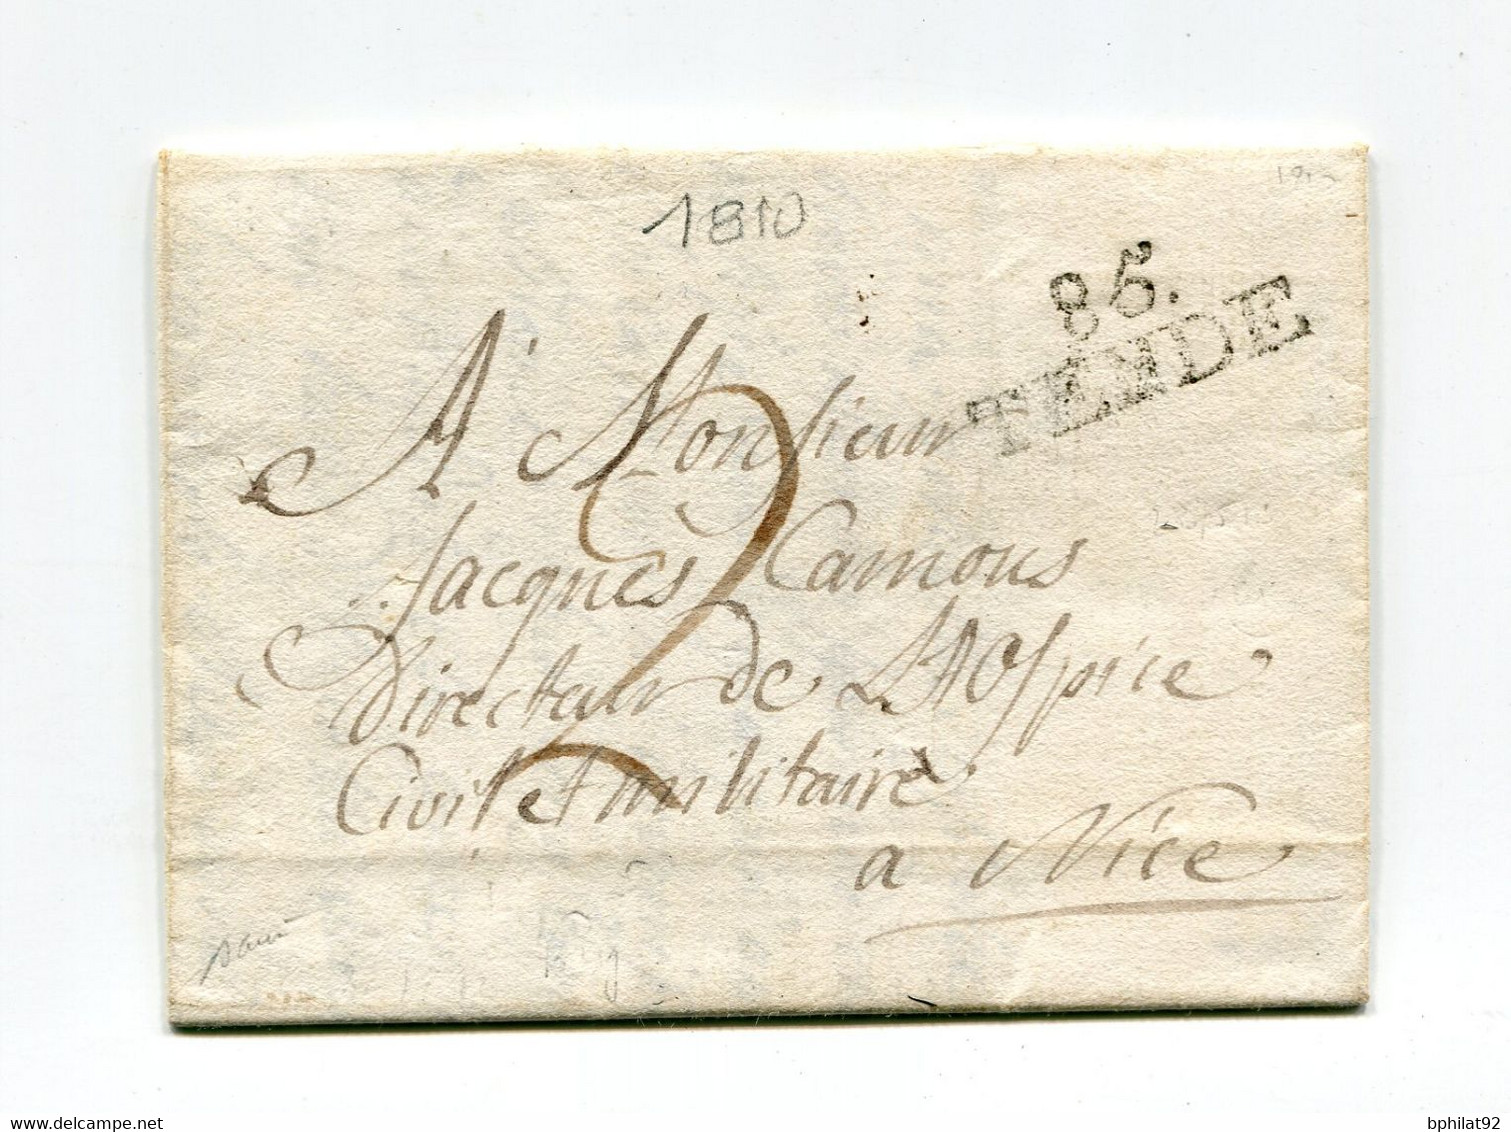 1810
85.
TENDE
A Monsieur
Jacques Camous
2
Directeur de L'Hospice
Civil et militaire
a Nice
www.delcampe.net
bphilat92